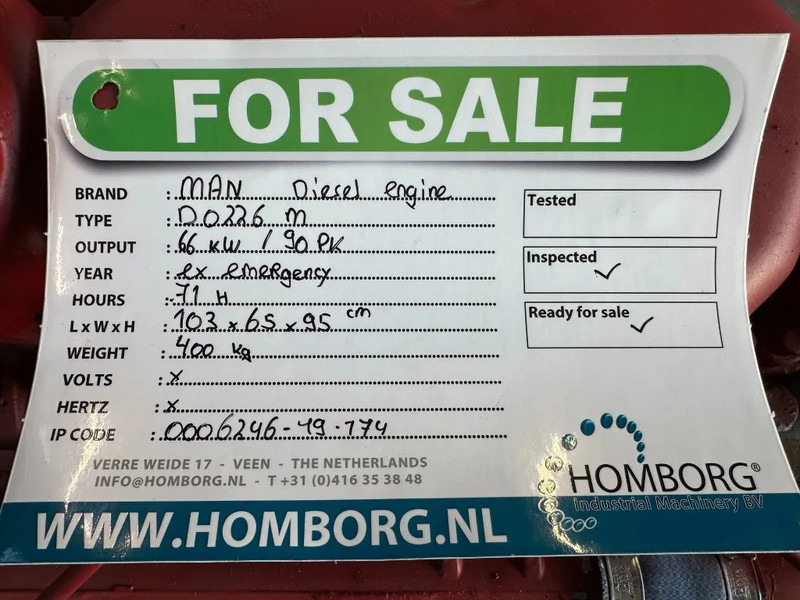 FOR SALE
BRAND : MAN Diesel engine
TYPE : D0226 M
OUTPUT : 66 kW / 90 PK
YEAR : ex emergency
HOURS : 71 H
L x W x H : 103 x 65 x 95 cm
WEIGHT : 400 kg
VOLTS : x
HERTZ : x
IP CODE : 0006246-19-174
Tested
Inspected ✓
Ready for sale ✓
VERRE WEIDE 17 - VEEN - THE NETHERLANDS
INFO@HOMBORG.NL - T +31 (0)416 35 38 48
HOMBORG®
Industrial Machinery BV
WWW.HOMBORG.NL